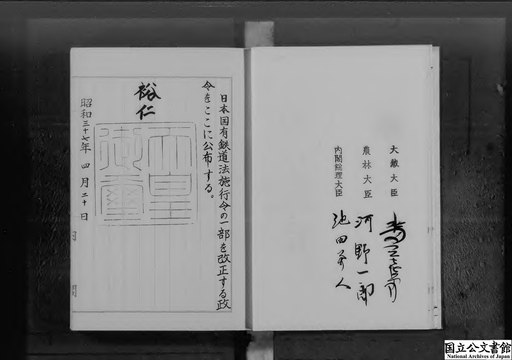 大蔵大臣
農林大臣 河野一郎
内閣総理大臣 池田勇人
日本国有鉄道法施行令の一部を改正する政
令をここに公布する。
裕仁
天皇
御璽
昭和三十七年 四月二十日
国立公文書館
National Archives of Japan